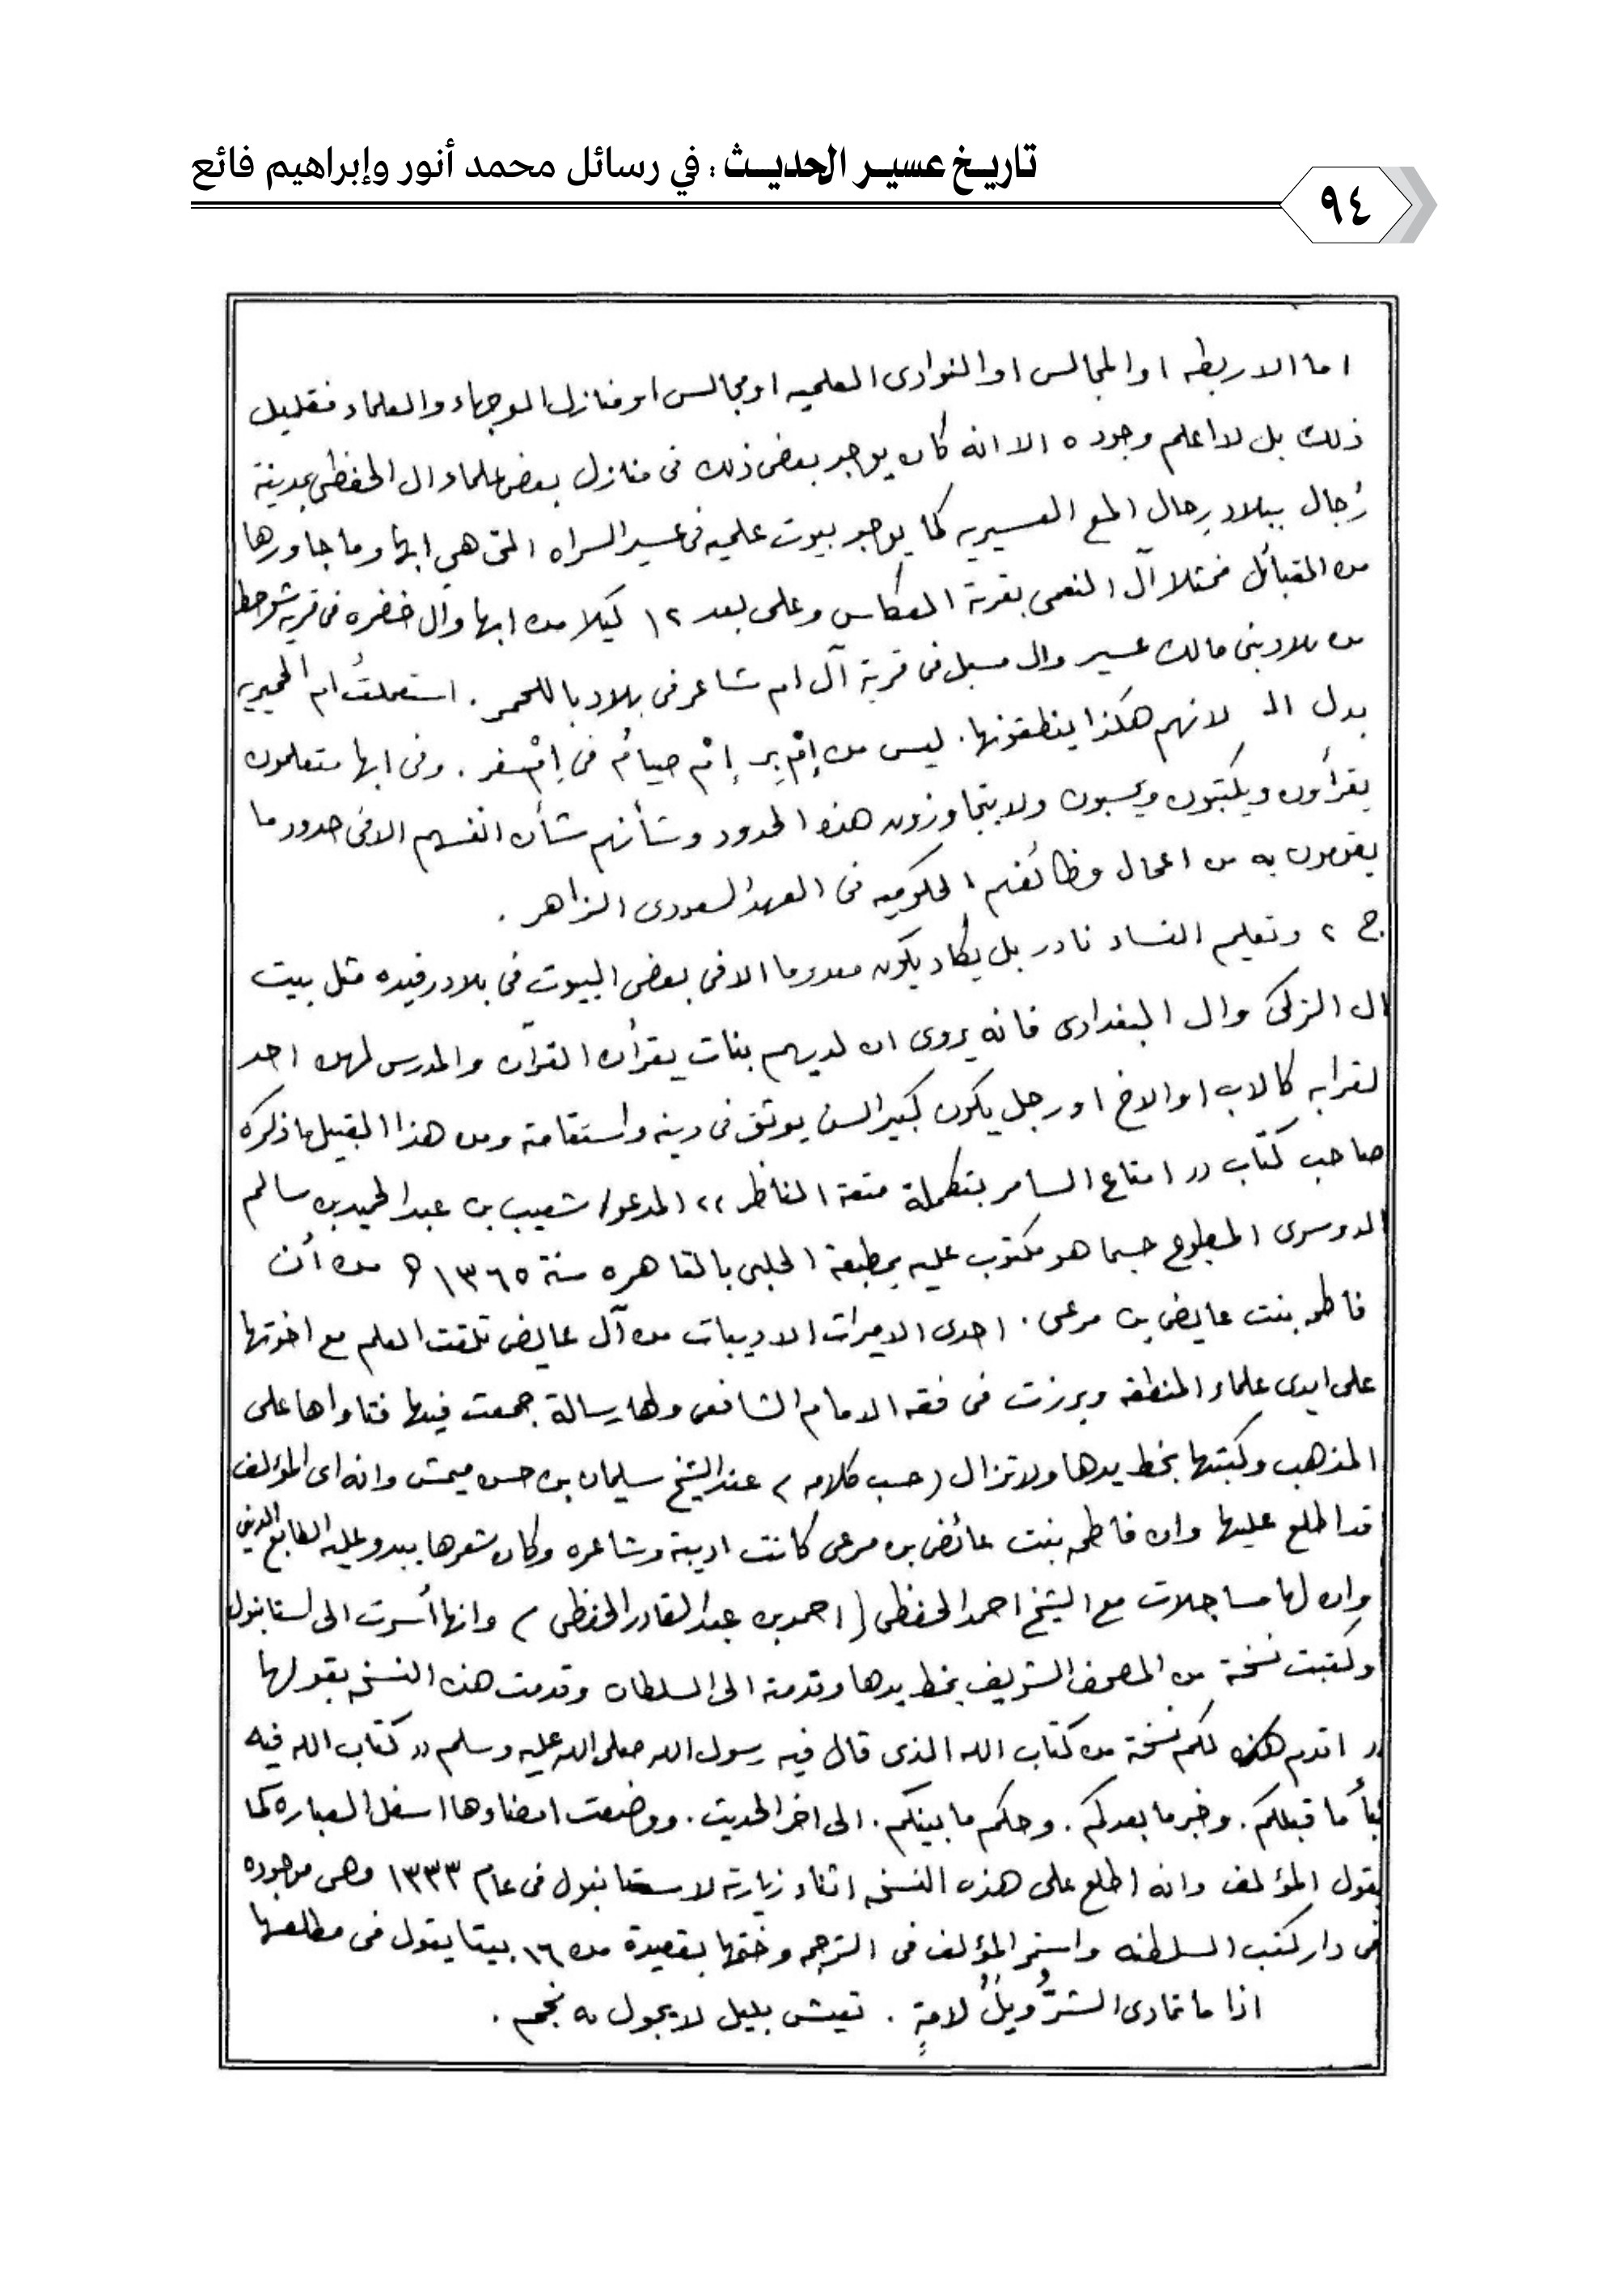 تاريخ عسير الحديث : في رسائل محمد أنور وإبراهيم فائع
٩٤
اما الاربطه او المجالس او النوادى العلميه او مجالس او منازل الوجهاء والعلماء فقليل
ذلك بل لا اعلم وجوده الا انه كان يوجد بعض ذلك فى منازل بعض علماء ال الحفظى بمدينة
رُجال ببلاد رجال المع العسيريه كما يوجد بيوت علميه فى عسير السراه التى هي ابها وما جاورها
من القبائل فمثلا آل النعمى بقرية العكاس وعلى بعد ١٢ كيلا من ابها وآل خضره فى قرية شوحط
من بلاد بنى مالك عسير وال مسبل فى قرية آل ام شاعر فى بلاد باللحمر . استعملتُ ام الحميريه
بدل الـ لانهم هكذا ينطقونها . ليس من إمْ بِر إمْ صيامُ فى اِمْ سفر . وفى ابها متعلمون
يقرأون ويكتبون ويحسبون ولا يتجاوزون هذه الحدود وشأنهم شأن انفسهم الا فى حدود ما
يقومون به من اعمال وظائفهم الحكوميه فى العهد السعودى الزاهر .
ج ٢ وتعليم النساء نادر بل يكاد يكون معدوما الا فى بعض البيوت فى بلاد رفيده مثل بيت
ال الزكىّ وال البغدادى فانه يروى ان لديهم بنات يقرأن القرآن والمدرس لهن احد
لقرابه كالاب او الاخ او رجل يكون كبير السن يوثق فى دينه واستقامته ومن هذا القبيل ما ذكره
صاحب كتاب (( امتاع السامر بتكملة متعة الناظر )) المدعو/ شعيب بن عبد الحميد بن سالم
الدوسرى المطبوع حسبما هو مكتوب عليه بمطبعة الحلبى بالقاهره سنة ١٣٦٥ هـ من أن
فاطمه بنت عايض بن مرعى . احدى الاميرات الاديبات من آل عايض تلقت العلم مع اخوتها
على ايدى علماء المنطقه وبرزت فى فقه الامام الشافعى ولها رسالة جمعت فيها فتاواها على
المذهب وكتبتها بخط يدها ولا تزال ( حسب كلامه ) عند الشيخ سليمان بن حسن ميمش وانه اى المؤلف
قد اطلع عليها وان فاطمه بنت عائض بن مرعى كانت اديبة وشاعره وكان شعرها يبدو عليه الطابع الدينى
وان لها مساجلات مع الشيخ احمد الحفظى ( احمد بن عبد القادر الحفظى ) وانها أسرت الى استانبول
وكتبت نسخة من المصحف الشريف بخط يدها وقدمته الى السلطان وقدمت هذه النسخه بقولها
(( اقدم لكم نسخة من كتاب الله الذى قال فيه رسول الله صلى الله عليه وسلم (( كتاب الله فيه
نبأ ما قبلكم . وخبر ما بعدكم . وحكم ما بينكم . الى اخر الحديث . ووضعت امضاءها اسفل العباره كما
يقول المؤلف وانه اطلع على هذه النسخه اثناء زيارته لاستانبول فى عام ١٣٣٣ وهى موجوده
فى دار كتب السلطنه واستمر المؤلف فى الترجمه وختمها بقصيدة من ١٦ بيتا يقول فى مطلعها
اذا ما تمادى الشرُّ ويلٌ لامةٍ . تعيش بليل لا يجول به نجم .